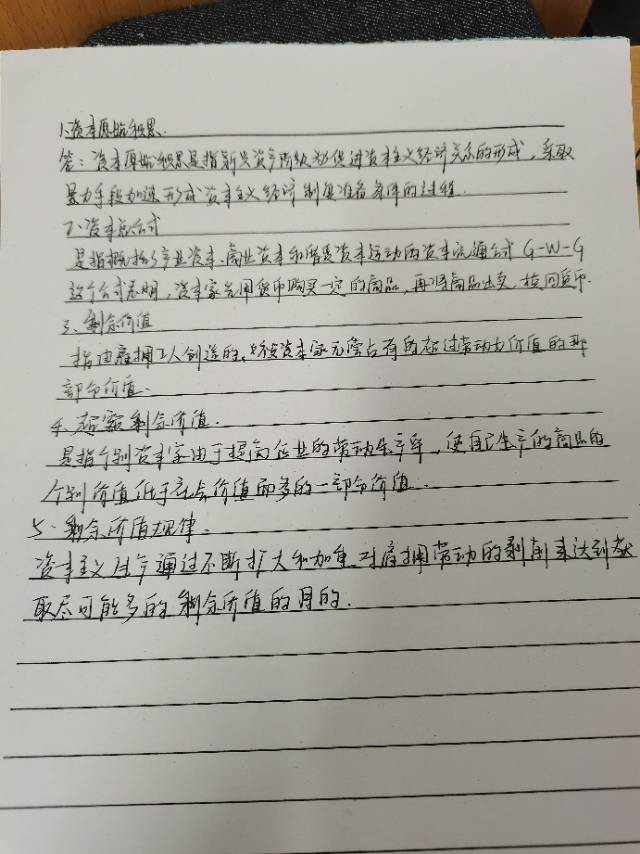 1.资本原始积累.
答：资本原始积累是指新兴资产阶级为促进资本主义经济关系的形成，采取
暴力手段加速形成资本主义经济制度准备条件的过程.
2.资本总公式
是指概括了产业资本、商业资本和借贷资本运动的资本流通公式 G-W-G
这个公式表明，资本家先用货币购买一定的商品，再将商品出卖，换回货币.
3.剩余价值
指由雇拥工人创造的，被资本家无偿占有的超过劳动力价值的那
部分价值.
4.超额剩余价值.
是指个别资本家由于提高企业的劳动生产率，使自己生产的商品的
个别价值低于社会价值而多的一部分价值.
5.剩余价值规律.
资本主义生产通过不断扩大和加重对雇拥劳动的剥削来达到获
取尽可能多的剩余价值的目的.